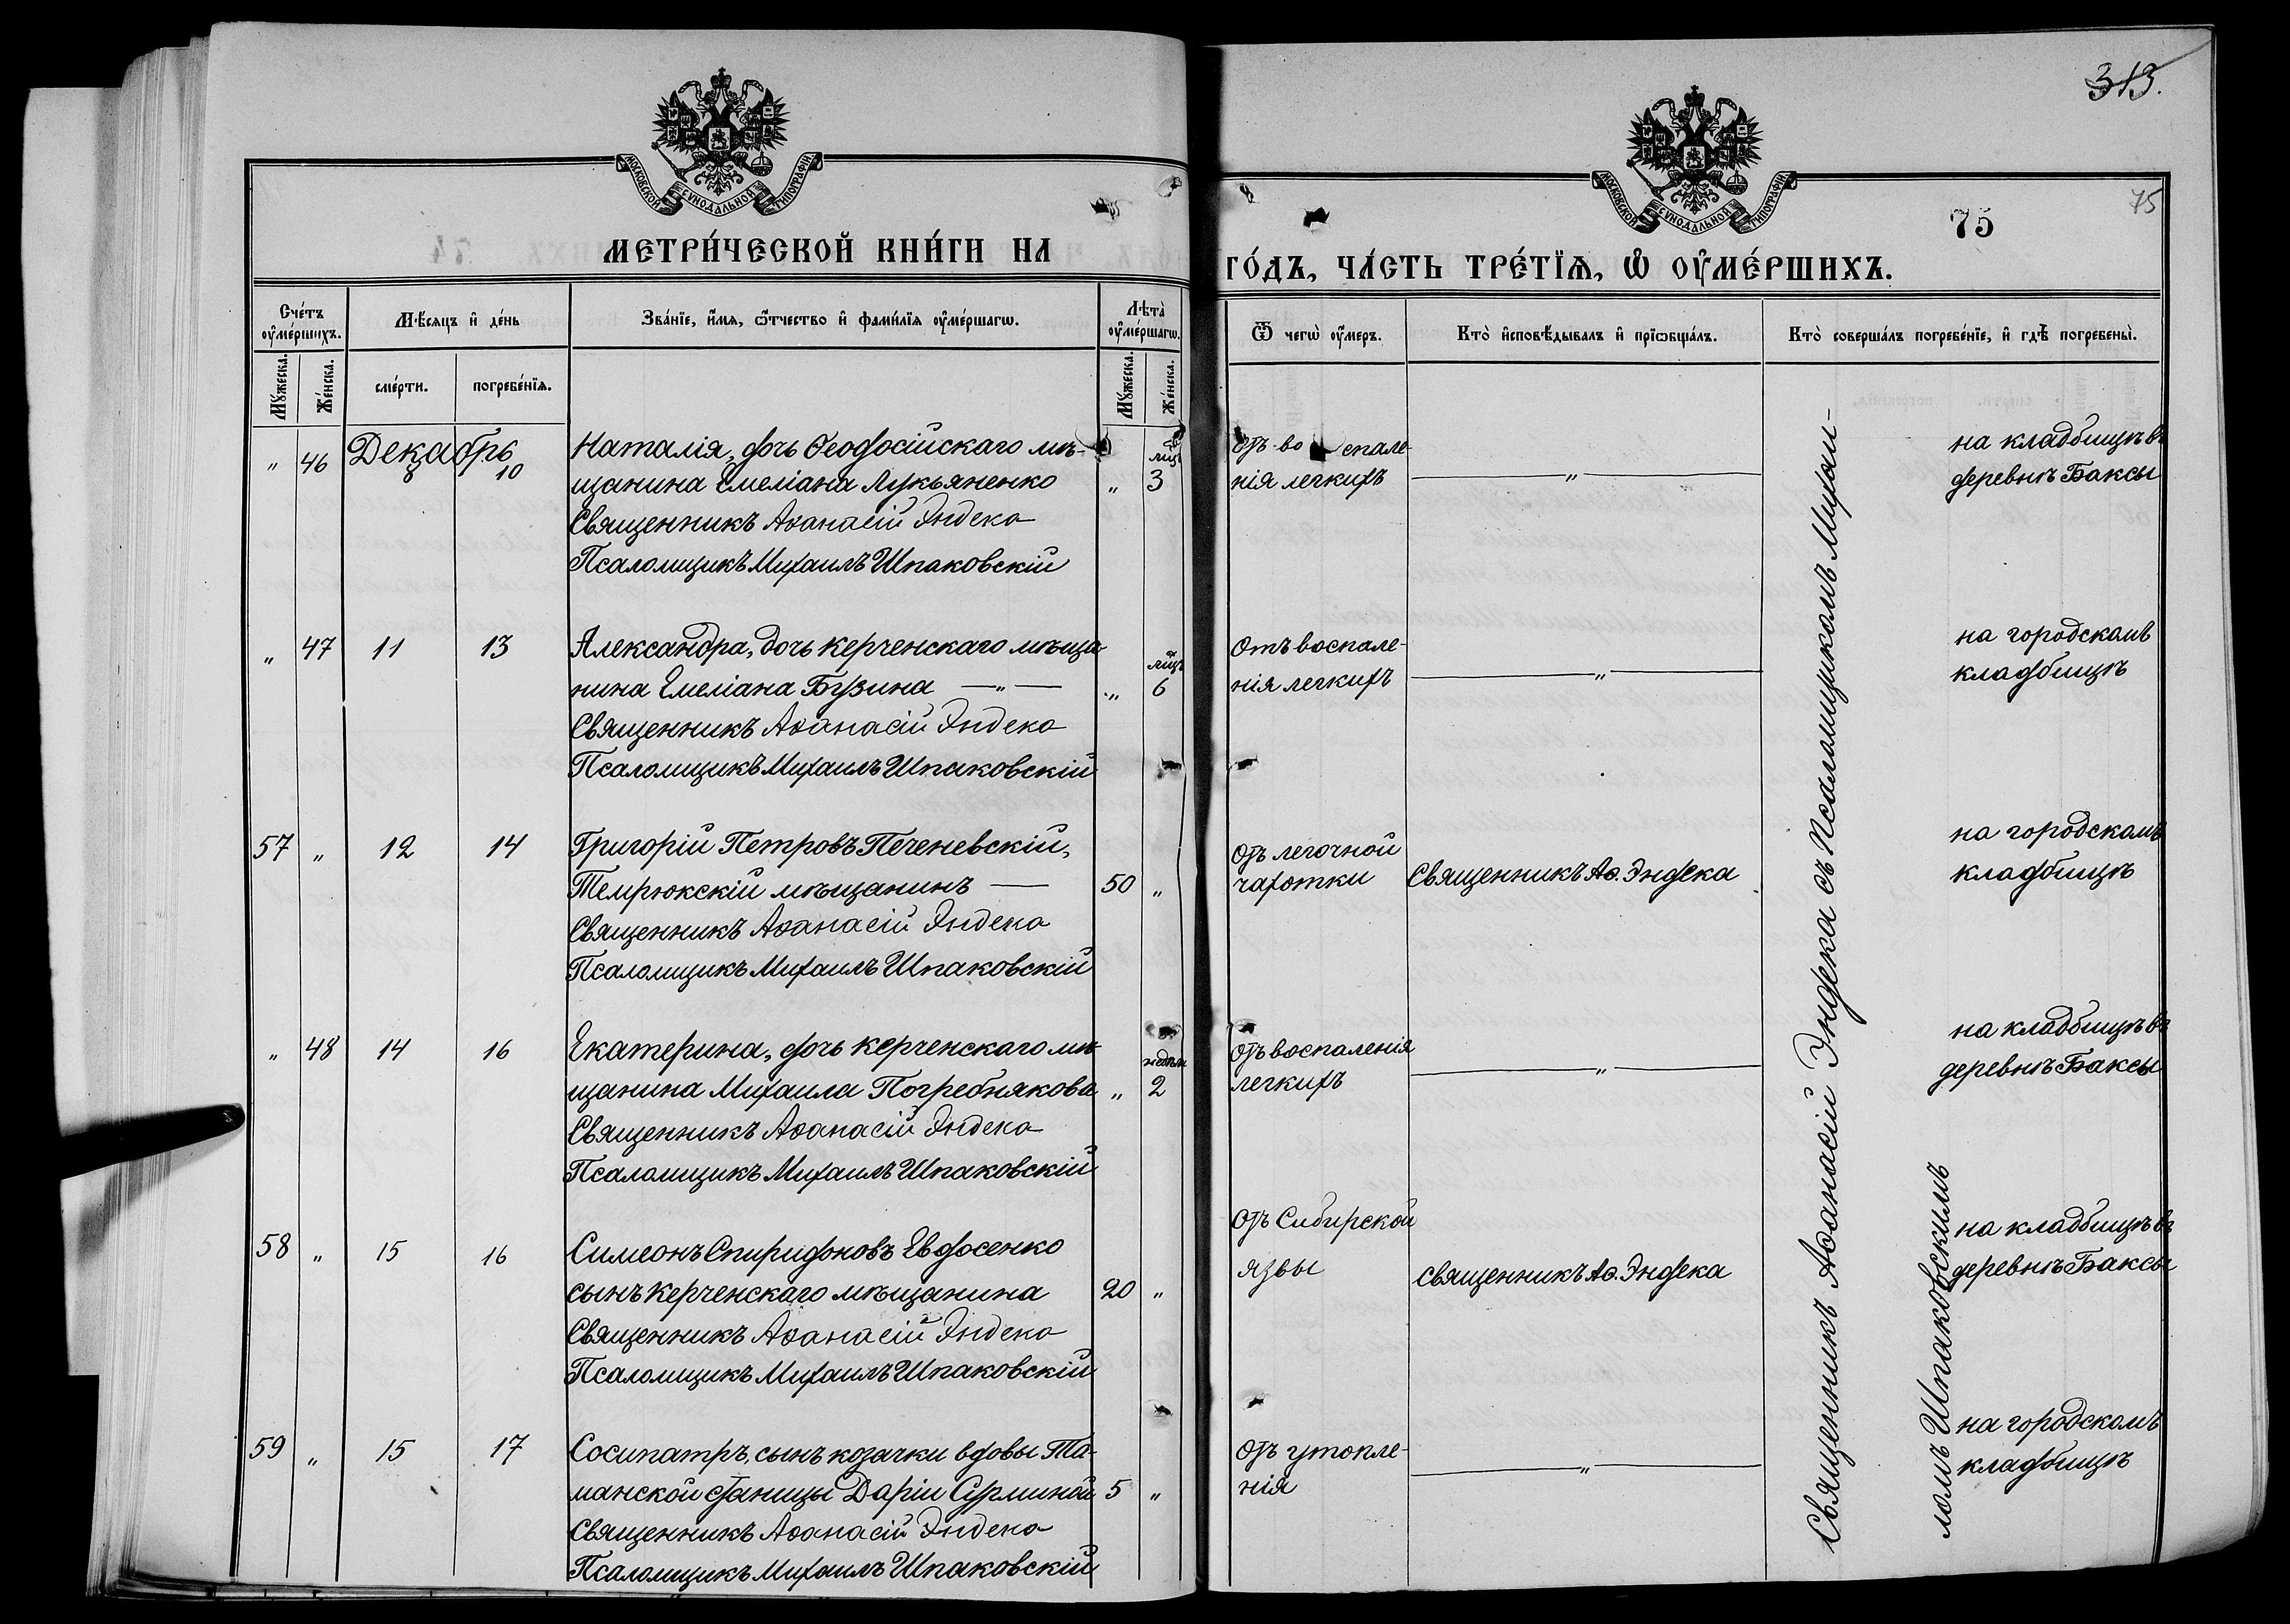 313.
МОСКОВСКОЙ СѴНОДАЛЬНОЙ ТИПОГРАФІИ
МОСКОВСКОЙ СѴНОДАЛЬНОЙ ТИПОГРАФІИ
75
75
МЕТРИ́ЧЕСКОЙ КНИ́ГИ НА
ГО́ДЪ, ЧА́СТЬ ТРЕ́ТІѦ, Ѡ҆ ОУ҆МЕ́РШИХЪ.
Сче́тъ оу҆ме́ршихъ.
Мѣ́сяцъ и҆ де́нь
Зва́нїе, и҆́мя, ѻ҆́тчество и҆ фами́лїя оу҆ме́ршагѡ.
Лѣта̀ оу҆ме́ршагѡ.
Ѿ чегѡ̀ оу҆́меръ.
Кто̀ и҆сповѣ́дывалъ и҆ прїѡбща́лъ.
Кто̀ соверша́лъ погребе́нїе, и҆ гдѣ̀ погребены̀.
Мꙋ́жеска.
Же́нска.
сме́рти.
погребе́нїя.
Мꙋ́жеска.
Же́нска.
„ 46 Декабрь 10
Наталія, дочь Ѳеодосійскаго мѣ-
щанина Емеліана Лукьяненко „ 3
Священникъ Аѳанасій Эндека
Псаломщикъ Михаилъ Шпаковскій
отъ воспале-
нія легкихъ „
на кладбищѣ въ
деревнѣ Баксы
„ 47 11 13 Александра, дочь керченскаго мѣща-
нина Емеліана Бузина — „ — „ мѣц 6
Священникъ Аѳанасій Эндека
Псаломщикъ Михаилъ Шпаковскій
Отъ воспале-
нія легкихъ „
на городскомъ
кладбищѣ
57 „ 12 14 Григорій Петровъ Печеневскій,
Темрюкскій мѣщанинъ — 50 „
Священникъ Аѳанасій Эндека
Псаломщикъ Михаилъ Шпаковскій
отъ легочной
чахотки Священникъ Аѳ. Эндека
на городскомъ
кладбищѣ
„ 48 14 16 Екатерина, дочь керченскаго мѣ-
щанина Михаила Погребнякова „ 2
Священникъ Аѳанасій Эндека
Псаломщикъ Михаилъ Шпаковскій
отъ воспаленія
легкихъ „
на кладбищѣ въ
деревнѣ Баксы
58 „ 15 16 Симеонъ Спиридоновъ Евдосенко
сынъ Керченскаго мѣщанина 20 „
Священникъ Аѳанасій Эндека
Псаломщикъ Михаилъ Шпаковскій
отъ Сибирской
язвы священникъ Аѳ. Эндека
на кладбищѣ въ
деревнѣ Баксы
59 „ 15 17 Сосипатръ, сынъ козачки вдовы Та-
манской станицы Даріи Сурминой 5 „
Священникъ Аѳанасій Эндека
Псаломщикъ Михаилъ Шпаковскій
отъ утопле-
нія „
на городскомъ
кладбищѣ
Священникъ Аѳанасій Эндека съ Псаломщикомъ Михаи-
ломъ Шпаковскимъ